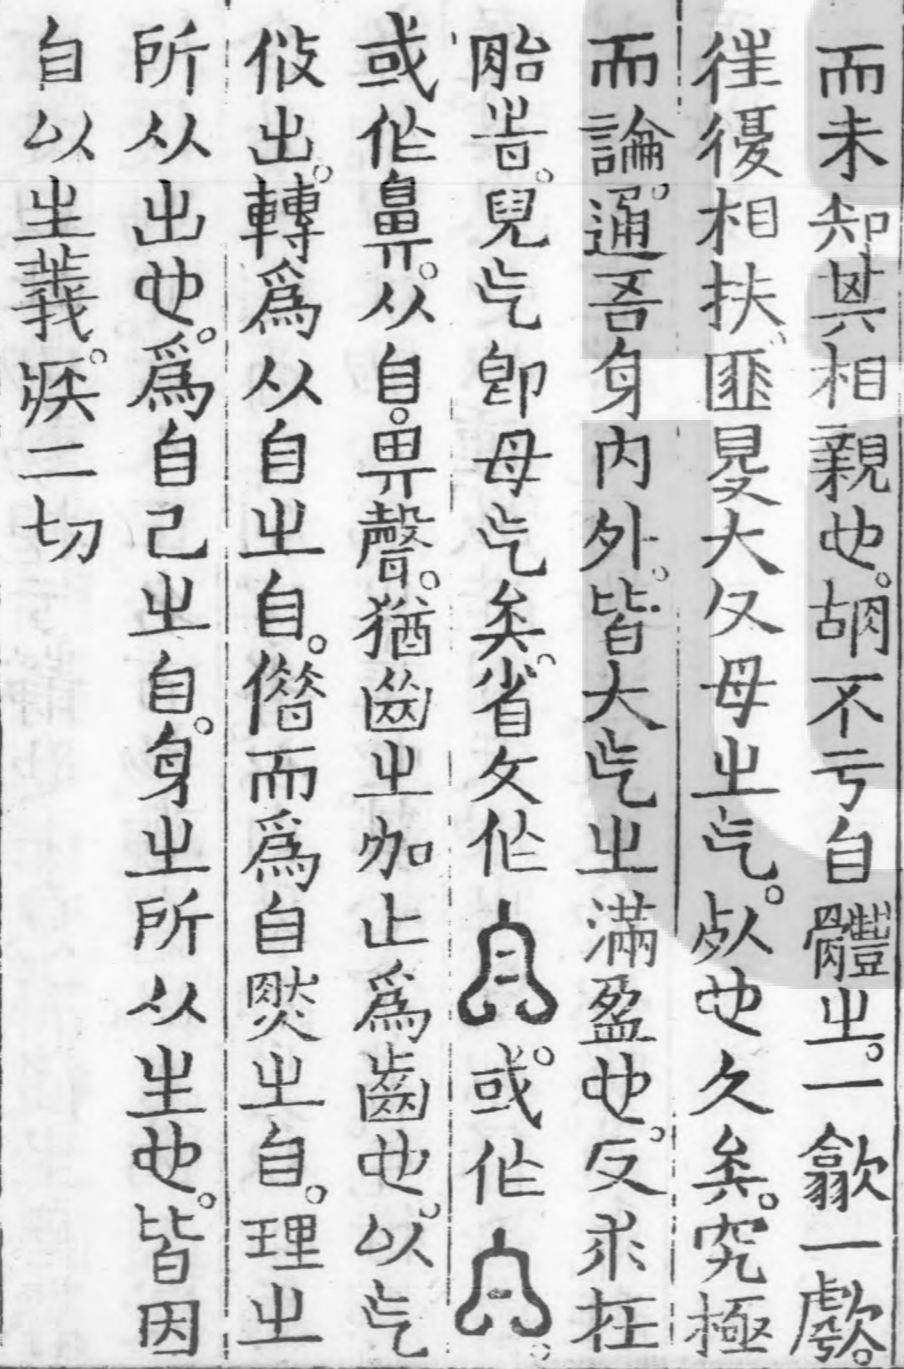 而未知其相親也。胡不于自體㞢。一歙一歔。
往復相扶、匪夐大父母㞢气。然也久矣。究極
而論。通吾身内外。皆大气㞢滿盈也。反求在
胎時。兒气卽母气矣。省文作。或作、
或作鼻。从自。畀聲。猶齒㞢加止爲齒也。以气
從出。轉爲从自㞢自。僭而爲自然㞢自。理㞢
所从出也。爲自己㞢自。身㞢所从生也。皆因
自以生義。疾二切